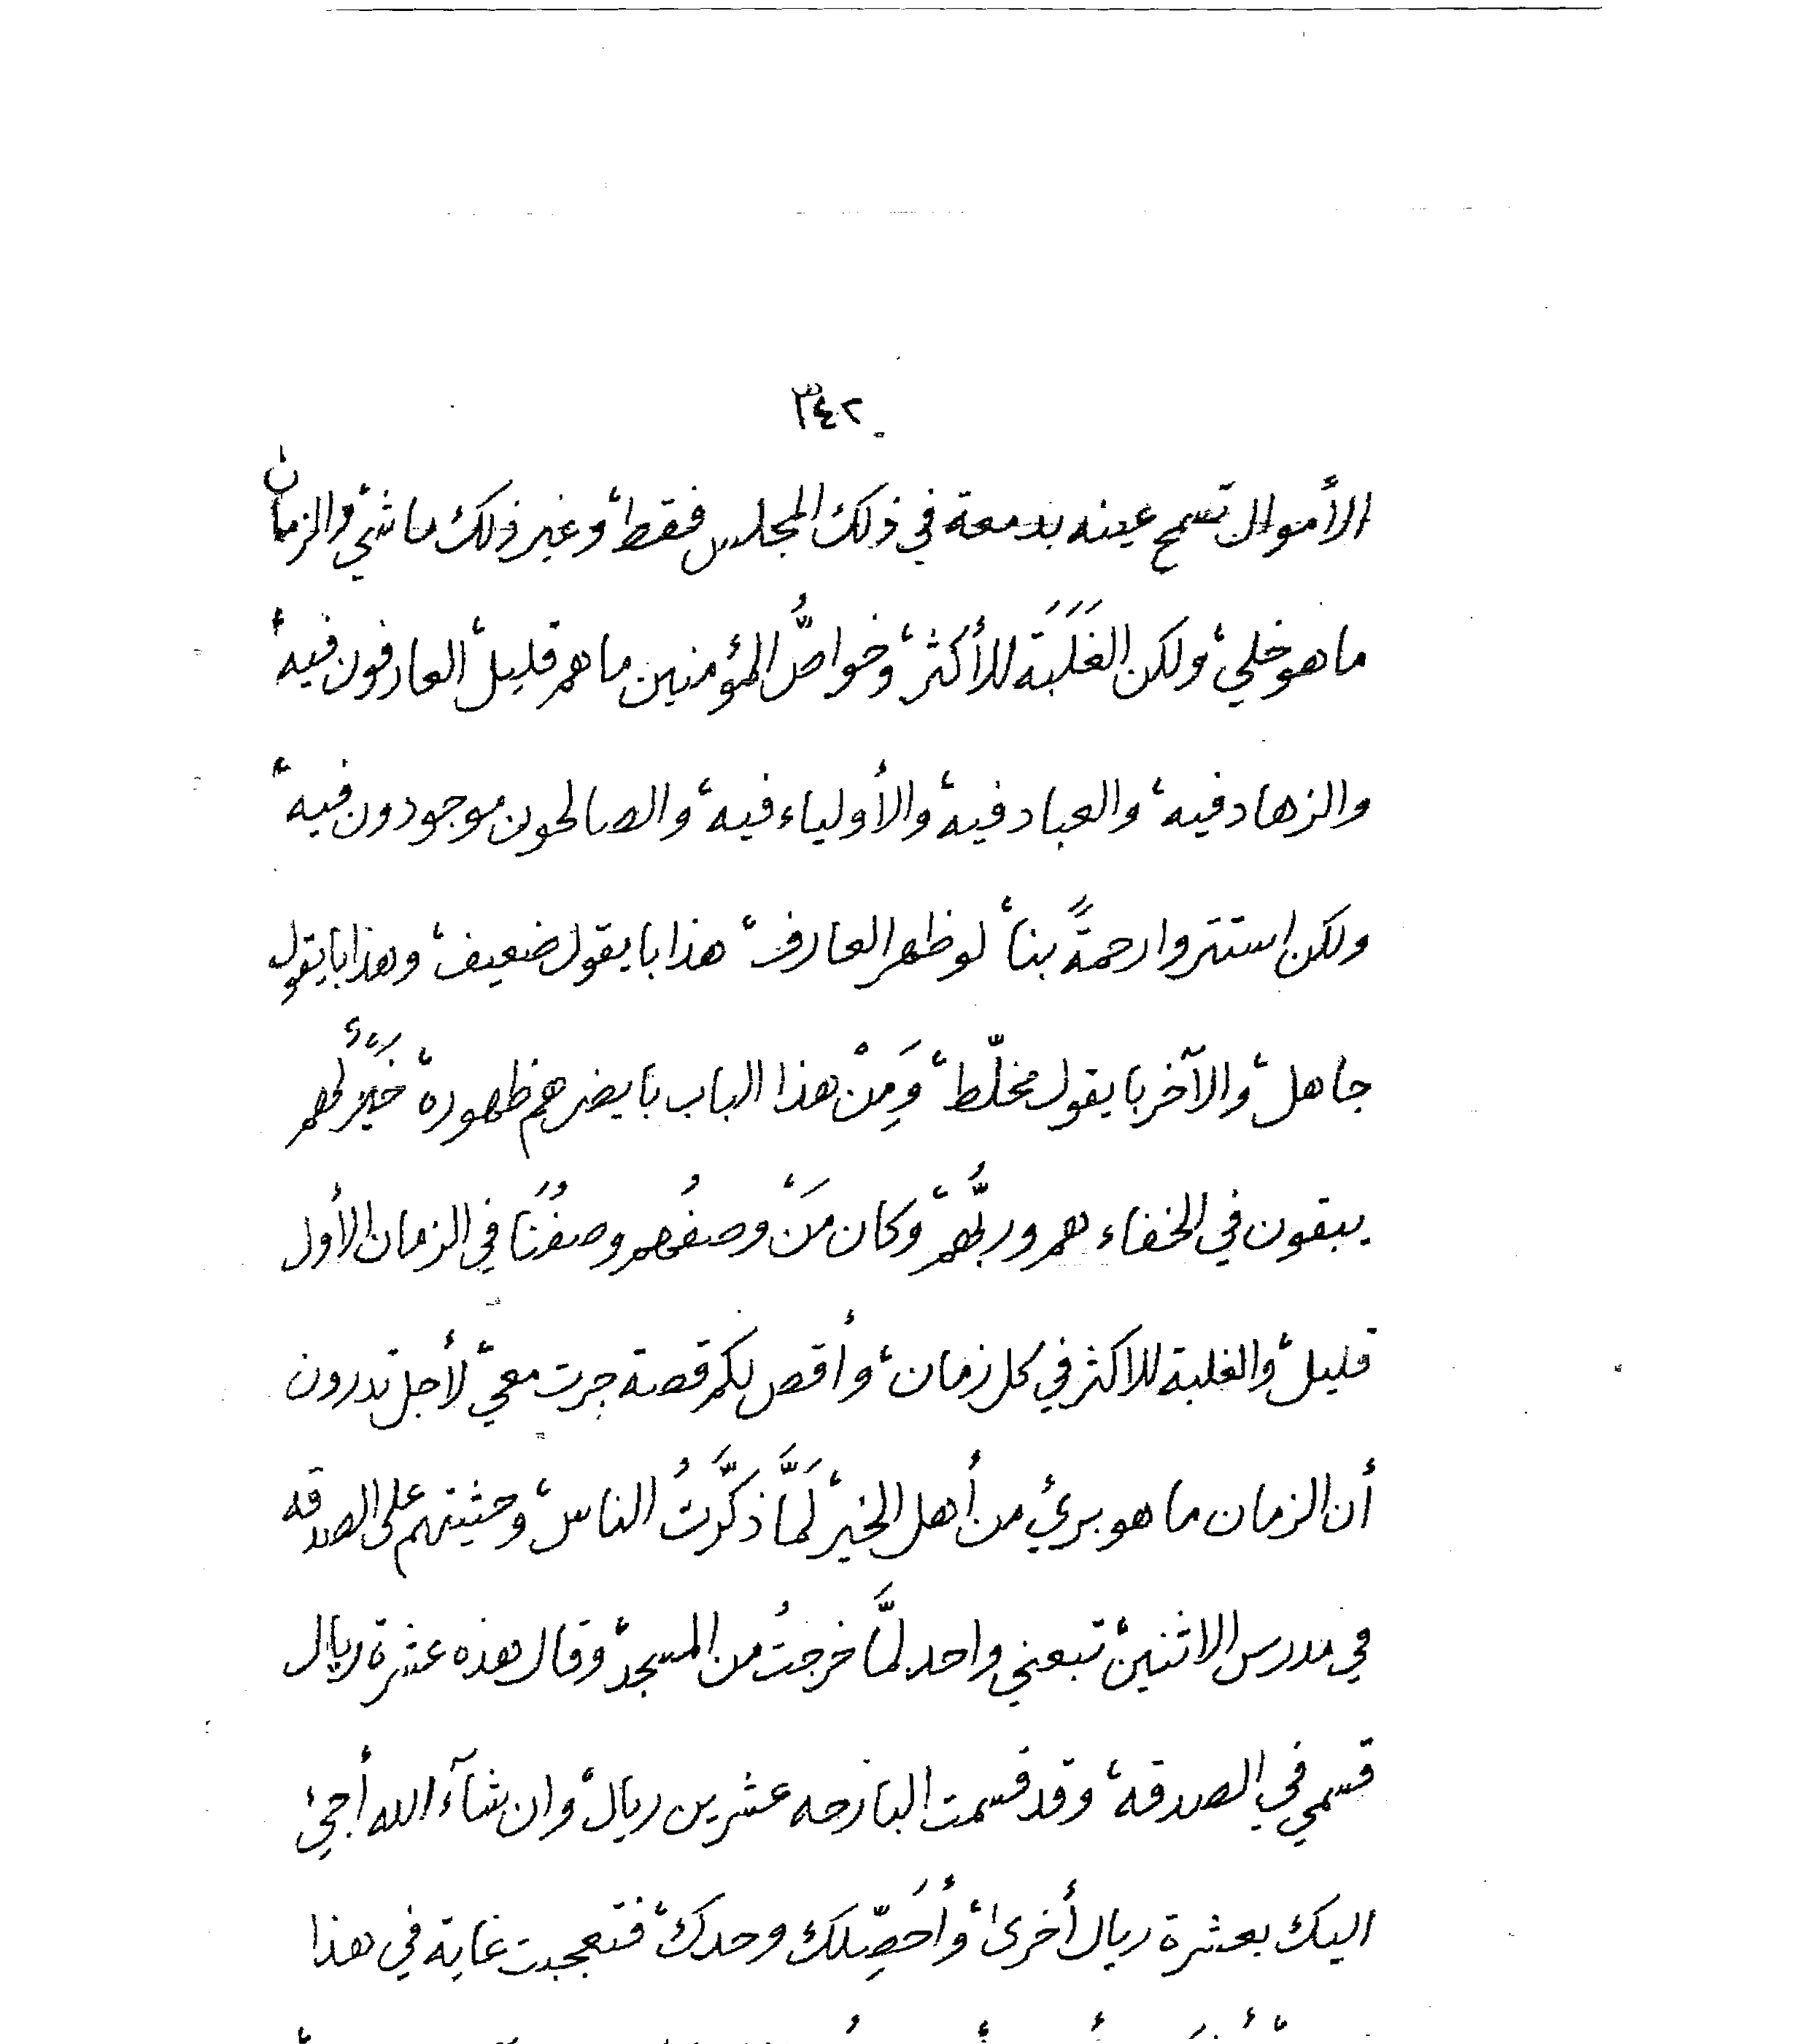 ٣٤٢
الأموال تسمح عينه بدمعة في ذلك المجلس فقط، وغير ذلك ماشي، والزمان
ما هو خلي، ولكن الغَلَبَة للأكثر، وخواصُّ المؤمنين ما هم قليل، العارفون فيه،
والزهاد فيه، والعباد فيه، والأولياء فيه، والصالحون موجودون فيه،
ولكن استتروا رحمةً بنا، لو ظهر العارف، هذا با يقول ضعيف، وهذا با يقول
جاهل، والآخر با يقول مخلّط، وَمِنْ هذا الباب با يضرهم ظهوره، خَيْرٌ لهم
يبقون في الخفاء هم وربُّهم، وكان مَنْ وصفُهم وصفُنَا في الزمان الأول
قليل، والغلبة للاكثر في كل زمان، وأقص لكم قصة جرت معي، لأجل تدرون
أن الزمان ما هو بريء من أهل الخير، لَمَّا ذَكَّرتُ الناس، وحثيتهم على الصدقه
في مدرس الاثنين، تبعني واحد لمَّا خرجتُ من المسجد، وقال هذه عشرة ريال
قسمي في الصدقه، وقد قسمت البارحه عشرين ريال، وان شآء الله أجيء
اليك بعشرة ريال أخرى، وأُحَصِّلك وحدك، فتعجبت غاية في هذا